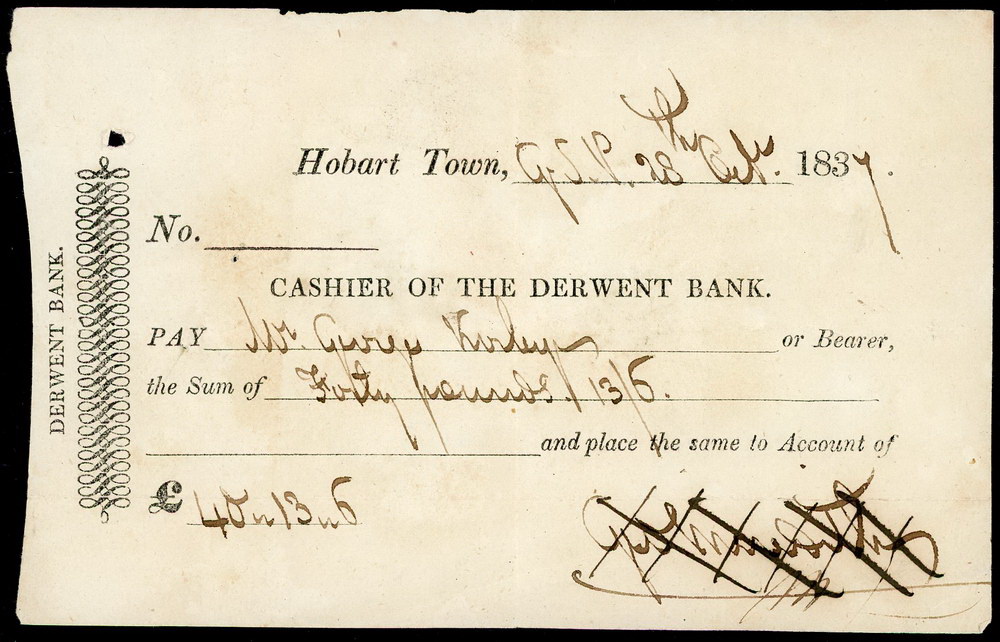 DERWENT BANK.
Hobart Town, 28th Octr. 1837.
No.
CASHIER OF THE DERWENT BANK.
PAY Mr. George or Bearer,
the Sum of Forty pounds 13/6.
and place the same to Account of
£ 40 " 13 " 6